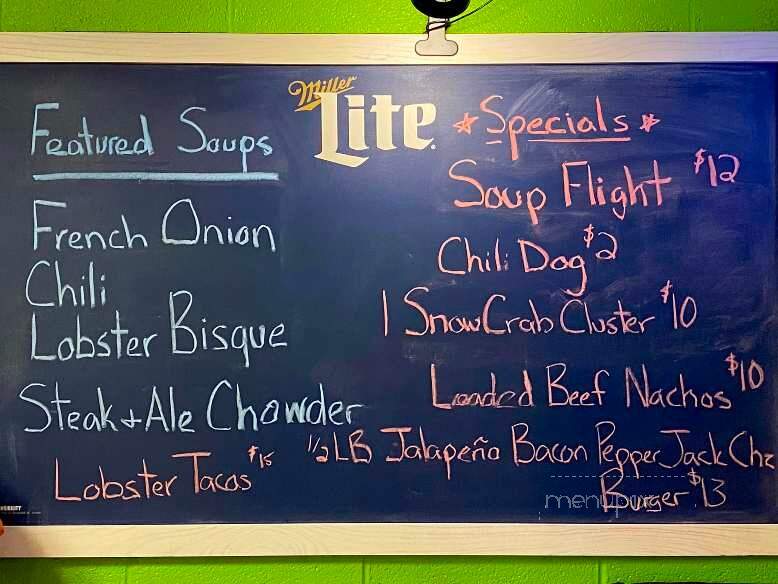 Miller
Lite
Featured Soups
French Onion
Chili
Lobster Bisque
Steak + Ale Chowder
Lobster Tacos $15
* Specials *
Soup Flight $12
Chili Dog $2
1 Snow Crab Cluster $10
Loaded Beef Nachos $10
1/2 LB Jalapeño Bacon Pepper Jack Chz
Burger $13
menupure